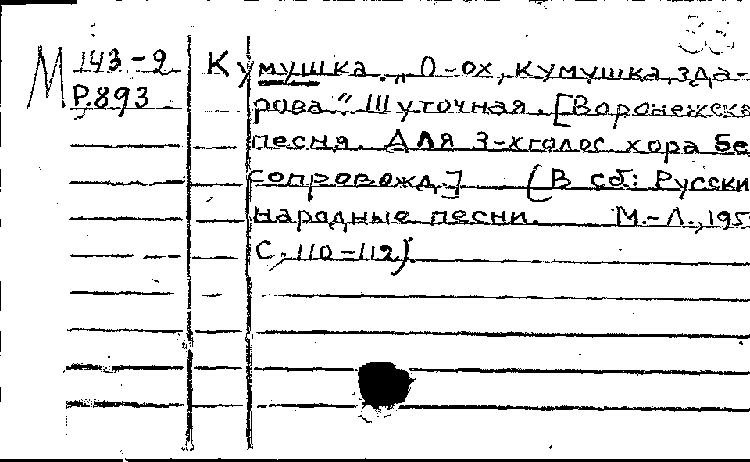 33
М 143-2 Кумушка. „О-ох, кумушка, зда-
Р.893 рова" Шуточная. [Воронежска
песня. Для 3-хголос хора бе
сопровожд.] (В сб: Русски
народные песни. М.-Л., 195
С, 110-112)